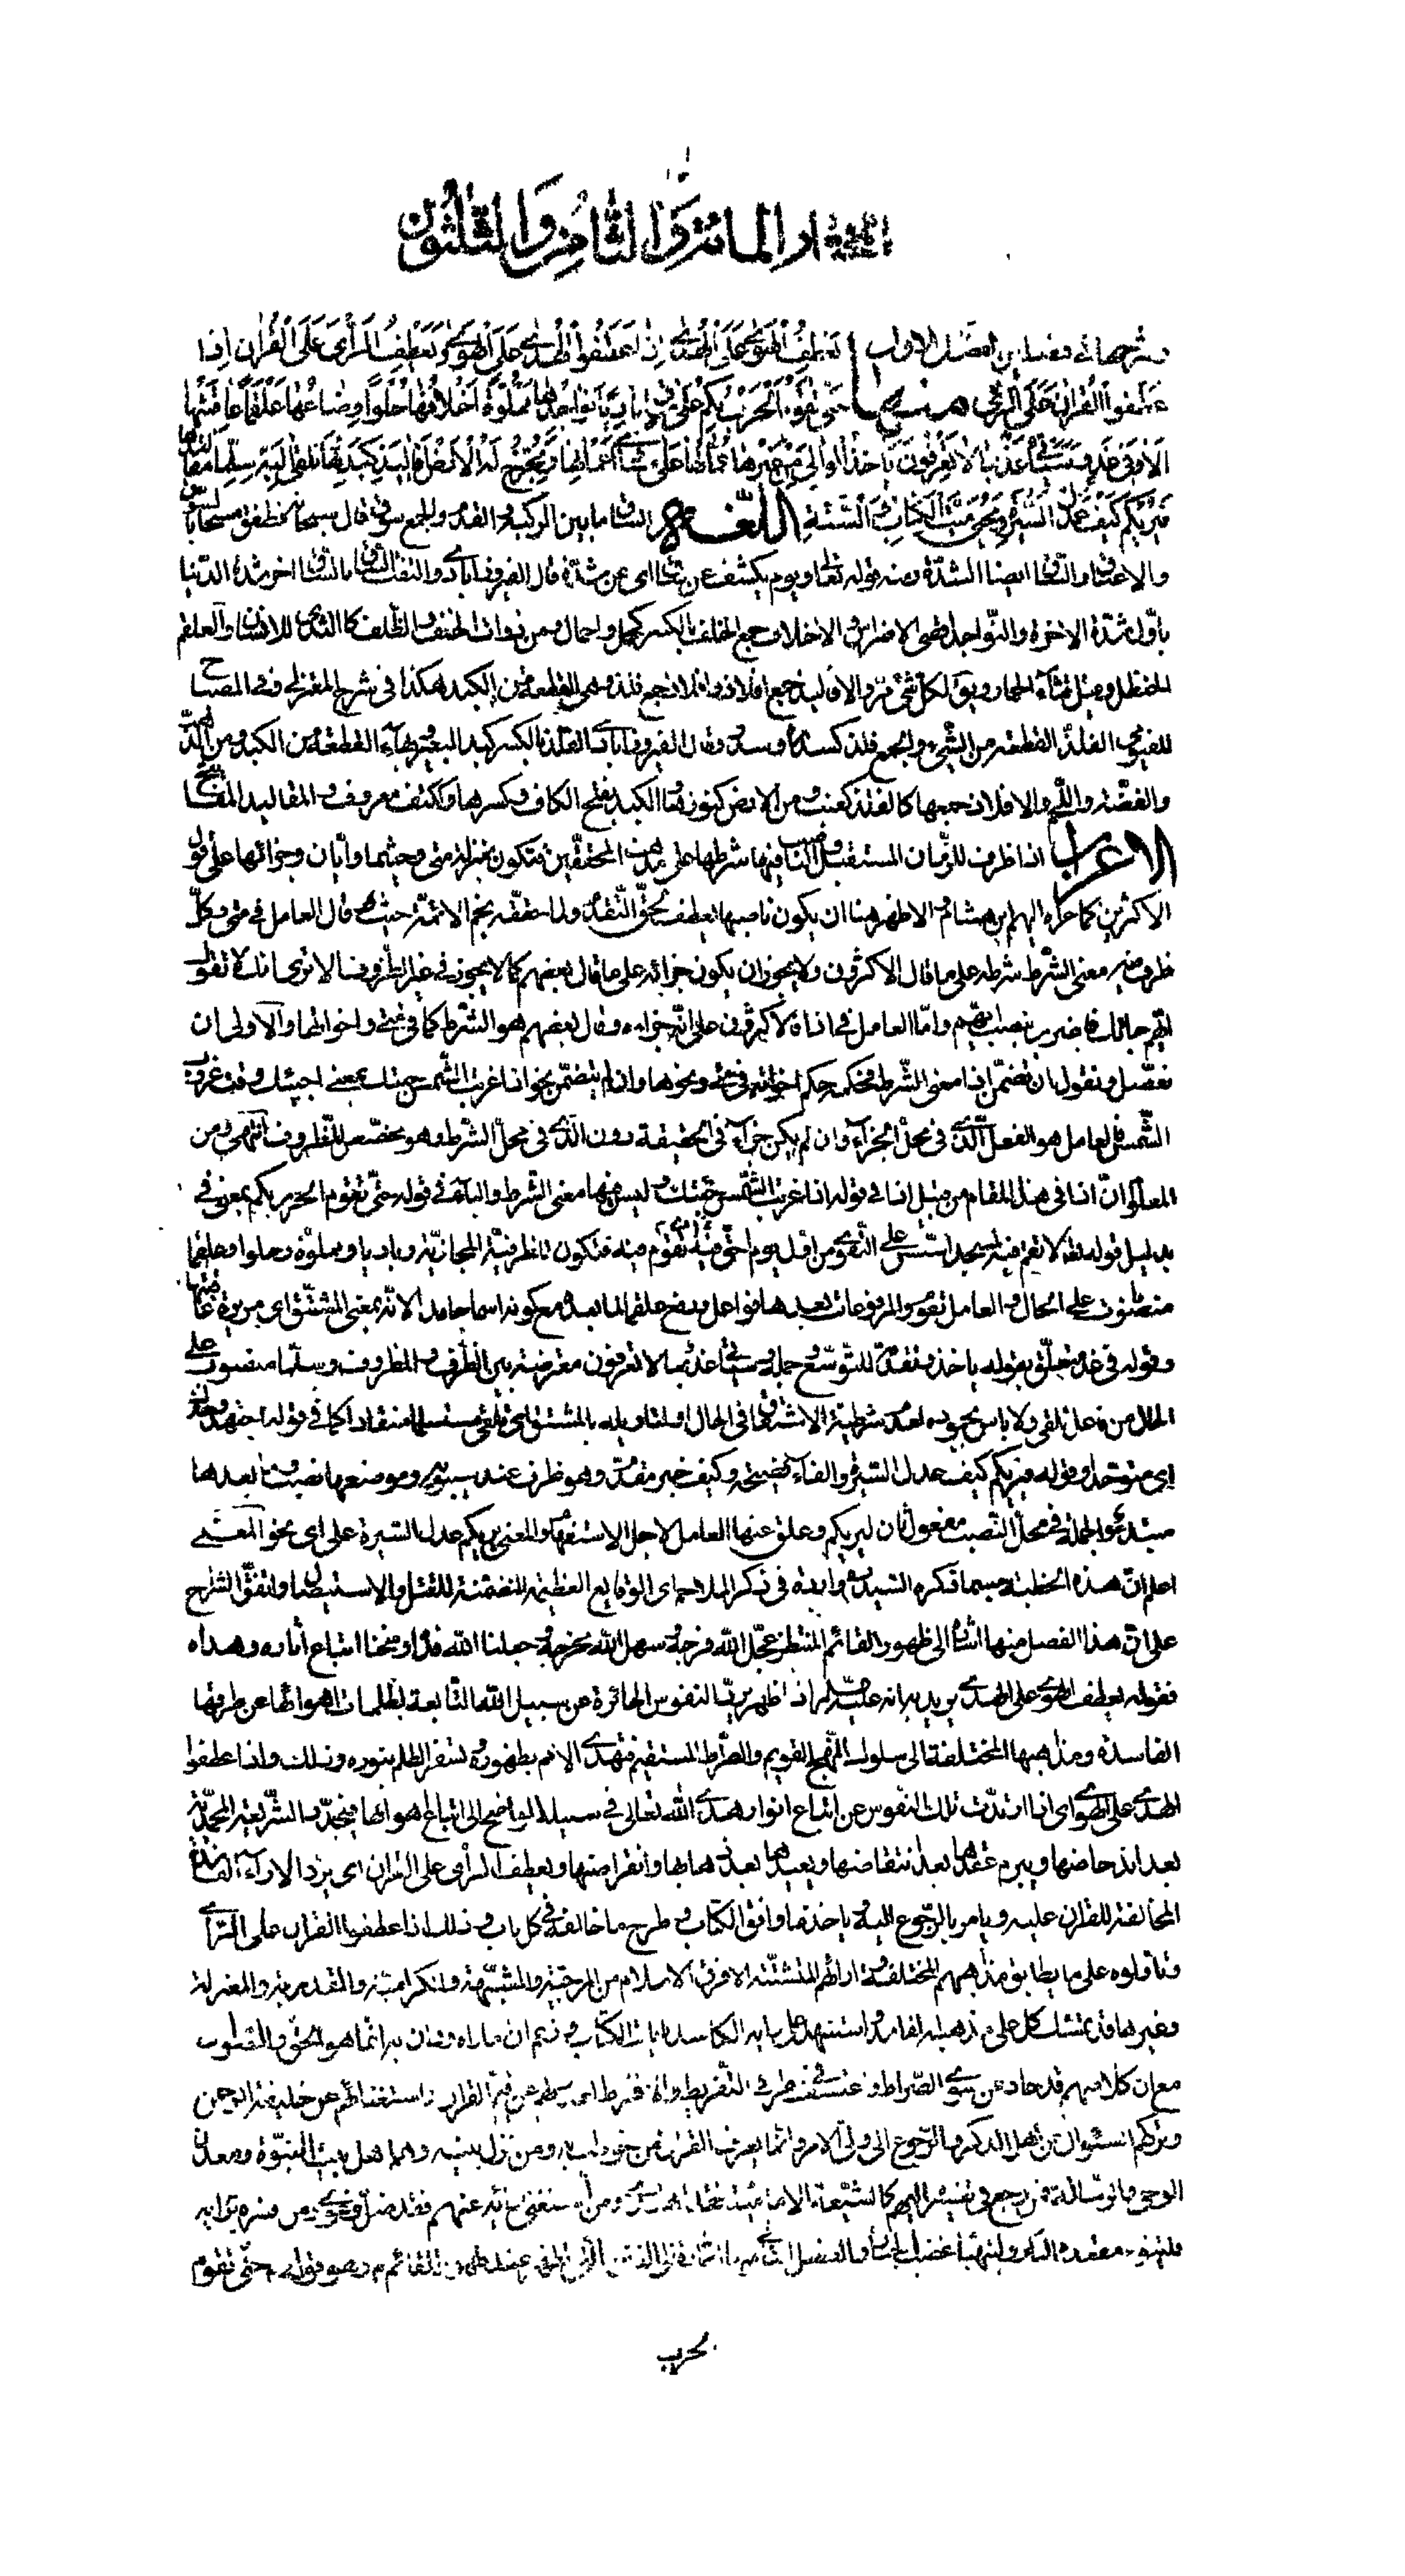 المختار المائة والثامن والثلثون
وشرحها في فصلين الفصل الاول يعطف الهوى على الهدى اذا عطفوا الهدى على الهوى ويعطف الرأى على القران اذا
عطفوا القران على الرأى منها حتى تقوم الحرب بكم على ساق باديا نواجذها مملوة اخلافها حلوا رضاعها علقما عاقبتها
الا وفي غد وسيأتي غد بما لا تعرفون يأخذ الوالي من غيرها عمالها على مساوى اعمالها وتخرج له الارض افاليذ كبدها وتلقى اليه سلما مقاليدها
فيريكم كيف عدل السيرة ويحيى ميت الكتاب والسنة اللغة الساق ما بين الركبة والقدم والجمع سوق قال سبحانه فطفق مسحا بالسوق
والاعناق والساق ايضا الشدة ومنه قوله تعالى ويوم يكشف عن ساق اى عن شدة قال الفيروزآبادى والتفت الساق بالساق اخر شدة الدنيا
باول شدة الاخرة والنواجذ اقصى الاضراس والاخلاف جمع الخلف بالكسر كحمل واحمال ومن ذوات الخف والظلف كالثدى للانسان والعلقم
الحنظل وقيل قثاء الحمار ويق لكل شىء مر والافاليذ جمع افلاذ وافلاذ جمع فلذ وهى القطعة من الكبد هكذا في شرح المعتزلي وفي المصباح
للفيومي الفلذة القطعة من الشىء والجمع فلذ كسدرة وسدر وقال الفيروزآبادى الفلذ بالكسر كبد البعير وبهاء القطعة من الكبد ومن الذهب
والفضة واللحم والافلاذ جمعها كالفلذ كعنب ومن الارض كنوزها والكبد بفتح الكاف وكسرها وككتف معروف والمقاليد المفاتيح
الاعراب اذا ظرف للزمان المستقبل والناصب فيها شرطها على مذهب المحققين فتكون بمنزلة متى وحيثما وايان وجزائها على قول
الاكثرين كما عزاه اليهم ابن هشام والاظهر هنا ان يكون ناصبها يعطف بحق التقدم ولما حققه نجم الائمة حيث قال العامل في متى وكل
ظرف فيه معنى الشرط شرطه على ما قال الاكثرون ولا يجوز ان يكون جزائه على ما قال بعضهم كما لا يجوز في غير الظروف الا ترى انك لا تقول
ايهم جائك فاضرب بنصب ايهم واما العامل في اذا فالاكثرون على انه جزاءه وقال بعضهم هو الشرط كما في متى واخواتها والاولى ان
نفصل ونقول ان تضمن اذا معنى الشرط فحكمه حكم اخواته في متى ونحوها وان لم يتضمن نحو اذا غربت الشمس جئتك بمعنى اجيئك وقت غروب
الشمس فالعامل هو الفعل الذى في محل الجزاء وان لم يكن جزاء في الحقيقة دون الذى في محل الشرط وهو مخصص للظرف انتهى ومن
المعلوم ان اذا في هذا المقام من قبيل اذا في قوله اذا غربت الشمس جئتك وليس فيها معنى الشرط والباء في قوله حتى تقوم الحرب بكم بمعنى في
بدليل قوله تعالى لا تقم فيه لمسجد اسس على التقوى من اول يوم احق ان تقوم فيه فتكون للظرفية المجازية وباديا ومملوة وحلوا وعلقما
منصوبات على الحال والعامل تقوم والمرفوعات بعدها فواعل ورفع علقما لما بعده مع كونه اسما جامدا لانه بمعنى المشتق اى مريرة عاقبتها
وقوله في غد متعلق بقوله ياخذ وتقدم للتوسع وجملة وسيأتي غد بما لا تعرفون معترضة بين الظرف والمظروف وسلما منصوب على
الحال من فاعل تلقى ولا باس بجموده لعدم شرطية الاشتقاق في الحال او لتاويله بالمشتق اى تلقى مستسلما منقادا كما في قوله اجتهد وحدك
اى متوحدا وقوله فيريكم كيف عدل السيرة والفاء فصيحة وكيف خبر مقدم وهو ظرف عند سيبويه وموضعها نصب وما بعدها
مبتدء والجملة في محل النصب مفعول ثان ليريكم وعلق عنها العامل لاجل الاستفهام والمعنى يريكم عدل السيرة على اى نحو المعنى
اعلم ان هذه الخطبة حسبما ذكره السيد ره واردة في ذكر الملاحم اى الوقايع العظيمة المتضمنة للقتل والاستيصال واتفق الشراح
على ان هذا الفصل منها اشارة الى ظهور القائم المنتظر عجل الله فرجه وسهل الله مخرجه وجعلنا الله فداه ومنحنا اتباع آثاره وهداه
فقوله يعطف الهوى على الهدى يريد به انه عليه السلام اذا ظهر يرد النفوس الحائرة عن سبيل الله التابعة لظلمات اهوائها عن طرقها
الفاسدة ومذاهبها المختلفة الى سلوك النهج القويم والصراط المستقيم فتهدى الامم بظهوره وتسفر الظلم بنوره وذلك اذا عطفوا
الهدى على الهوى اى اذا ارتدت تلك النفوس عن اتباع انوار هدى الله تعالى في سبيله الواضح الى اتباع اهوائها فيجدد الشريعة المحمدية
بعد اندحاضها ويبرم عقدها بعد انتقاضها ويعيدها بعد ذهابها وانقراضها ويعطف الرأى على القران اى يرد الاراء الفاسدة
المخالفة للقران عليه ويامر بالرجوع اليه وياخذ ما وافق الكتاب وطرح ما خالفه في كل باب وذلك اذا عطفوا القران على الرأى
وتأولوه على ما يطابق مذاهبهم المختلفة وارائهم المتشتتة الا فرق الاسلام من المرجئة والمشبهة والكرامية والقدرية والمعتزلة
وغيرها قد تمسك كل على مذهبه الفاسد واستشهد على رايه الكاسد بايات الكتاب وزعم ان ما راه ودان به انما هو الحق والصواب
مع ان كلا منهم قد حاد عن سوى الصراط واعتسف في طرفى التفريط والافراط لعدولهم عن قيم القران واستغنائهم عن خليفة الرحمن
وتركهم السئوال عن اهل الذكر والرجوع الى ولى الامر وانما يعرف القران من خوطب به ومن نزل ببيته وهم اهل بيت النبوة ومعدن
الوحى والرسالة فمن رجع في تفسيره اليهم كالشيعة الامامية فقد اهتدى ومن استغنى برائه عنهم فقد ضل وغوى ومن فسره برايه
فليتبوء مقعده من النار وليتهيا غضب الجبار والفصل الثاني منها اشارة الى الفتن التي تظهر عند ظهور القائم وهو قوله حتى تقوم
الحرب